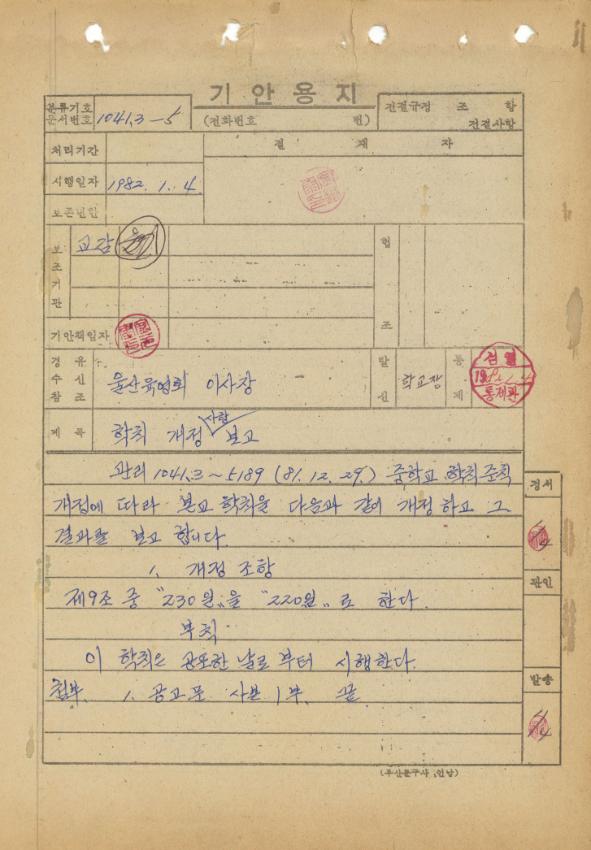 기안용지
분류기호
문서번호 1041.3-5
(전화번호 번)
전결규정 조 항
전결사항
처리기간
결 재 자
시행일자 1982. 1. 4
보존년한
보조기관
교감
협조
기안책임자
경유
수신
참조
울산육영회 이사장
발신
학교장
통제
검열
1982. 1. 4
통제관
제목 학칙 개정 사항 보고
관리 1041.3~5189 (81.12.29.) 중학교 학칙준칙
개정에 따라 본교 학칙을 다음과 같이 개정하고 그
결과를 보고 합니다.
1. 개정 조항
제9조 중 "230일"을 "220일"로 한다.
부칙
이 학칙은 공포한 날로 부터 시행한다.
첨부. 1. 공고문 사본 1부. 끝
정서
관인
발송